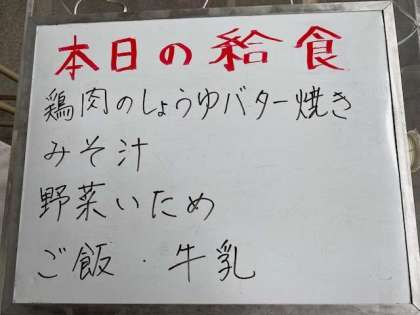 本日の給食
鶏肉のしょうゆバター焼き
みそ汁
野菜いため
ご飯・牛乳